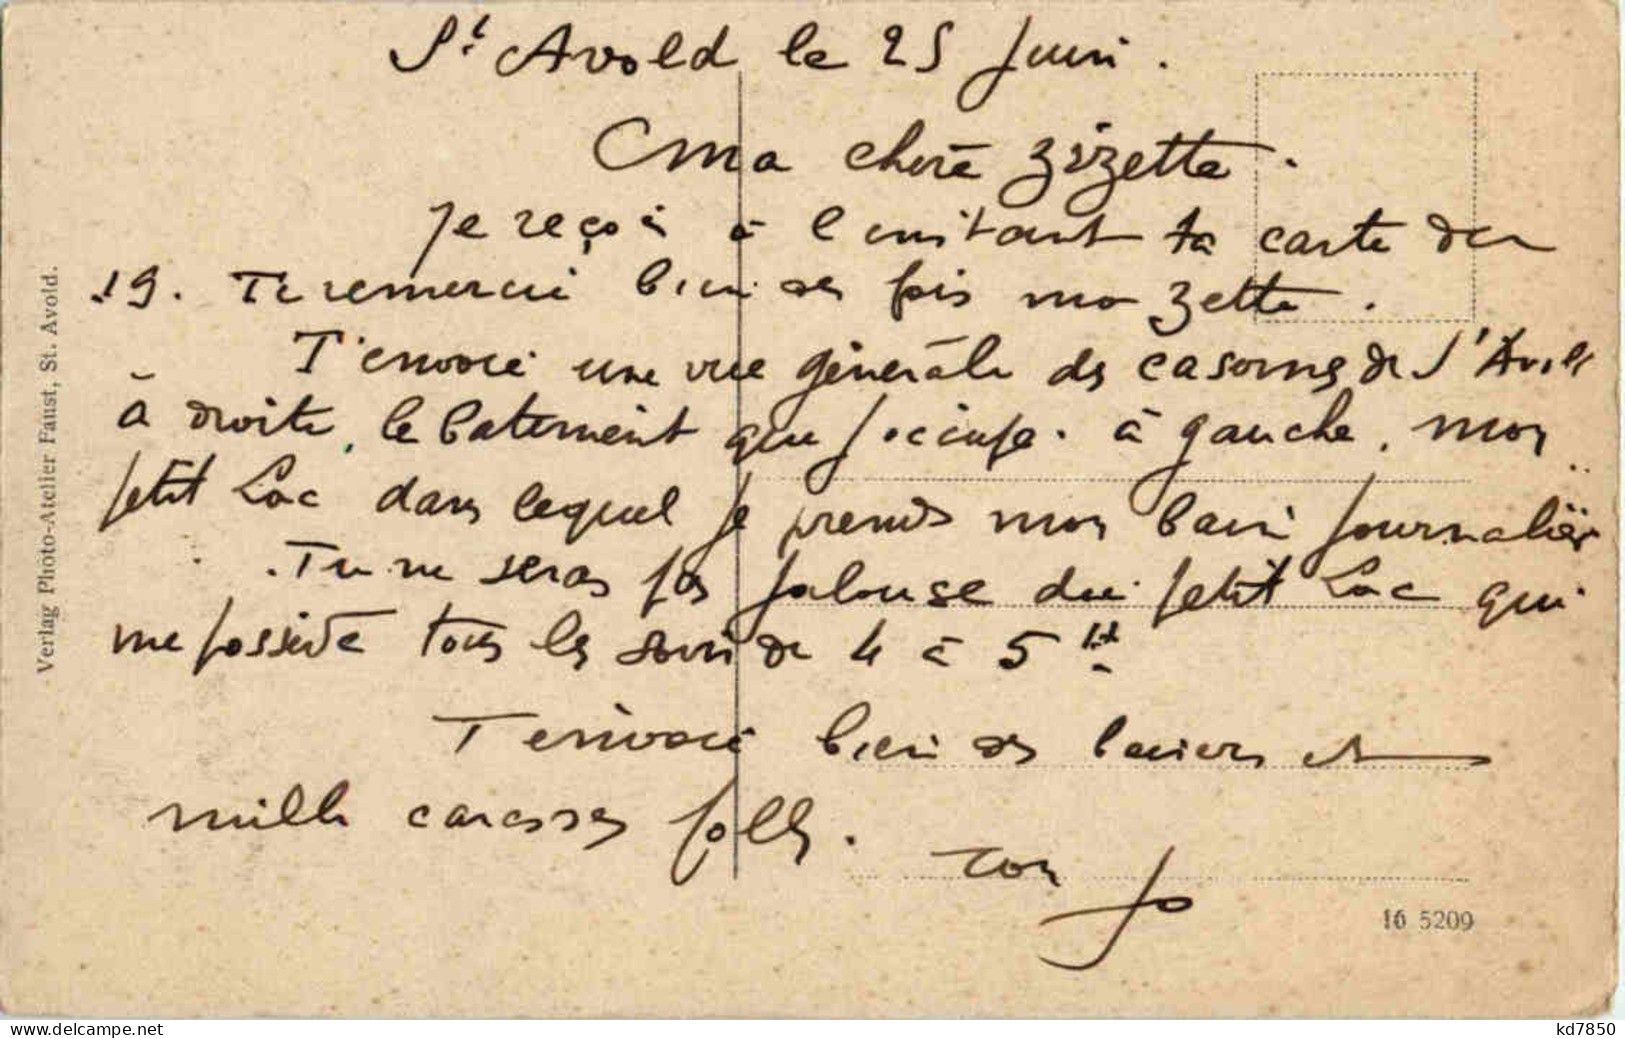 St Avold le 25 Juin.
Ma chère Zizette.
Je reçois à l'instant ta carte du
19. Te remercie bien des fois ma Zette.
T'envoie une vue générale des casernes de St Avold
à droite, le batiment que j'occupe. à gauche, mon
petit Lac dans lequel je prends mon bain journalier
. Tu ne seras pas jalouse du petit Lac qui
me possède tous les soirs de 4 à 5 H
T'envoie bien des baisers et
mille caresses folles.
ton Jo
Verlag Photo-Atelier Faust, St. Avold.
16 5209
kd7850